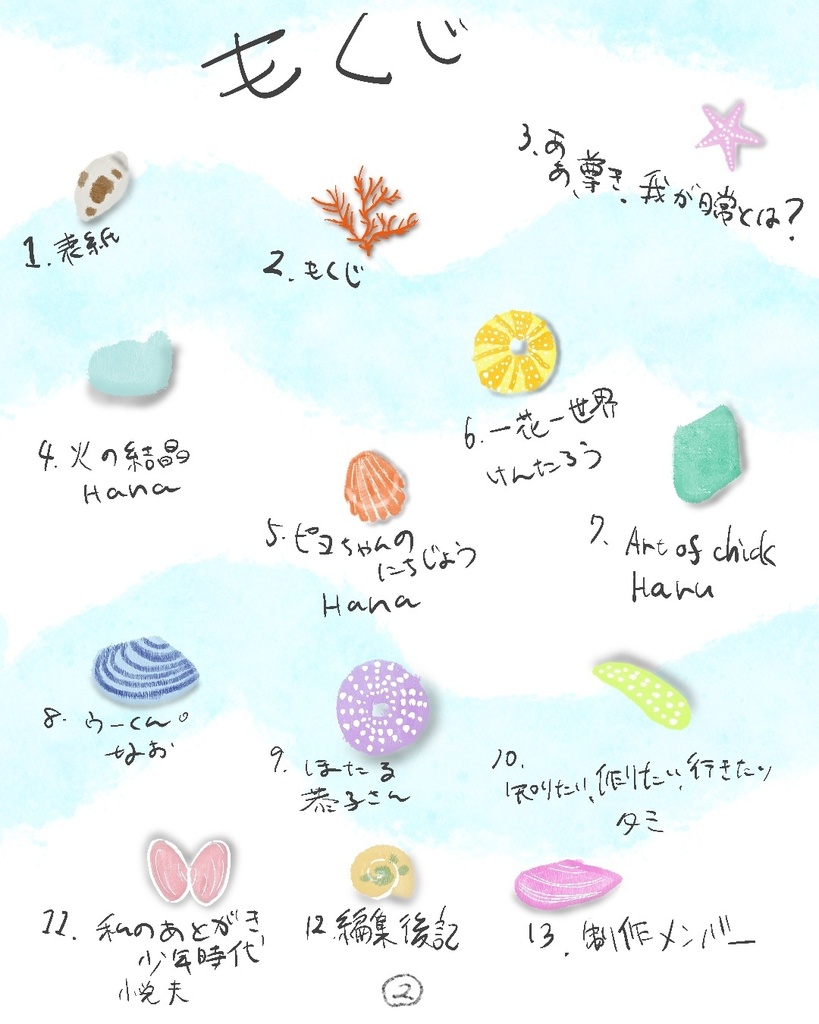 もくじ
1. 表紙
2. もくじ
3. あ
あ、尊き、我が日常とは?
4. 火の結晶
Hana
5. ピヨちゃんの
にちじょう
Hana
6. 一花一世界
けんたろう
7. Art of chick
Haru
8. うーくん。
なお
9. ほたる
恭子さん
10.
知りたい、作りたい、行きたい
タミ
11. 私のあとがき
少年時代
小悦夫
12. 編集後記
13. 制作メンバー
2